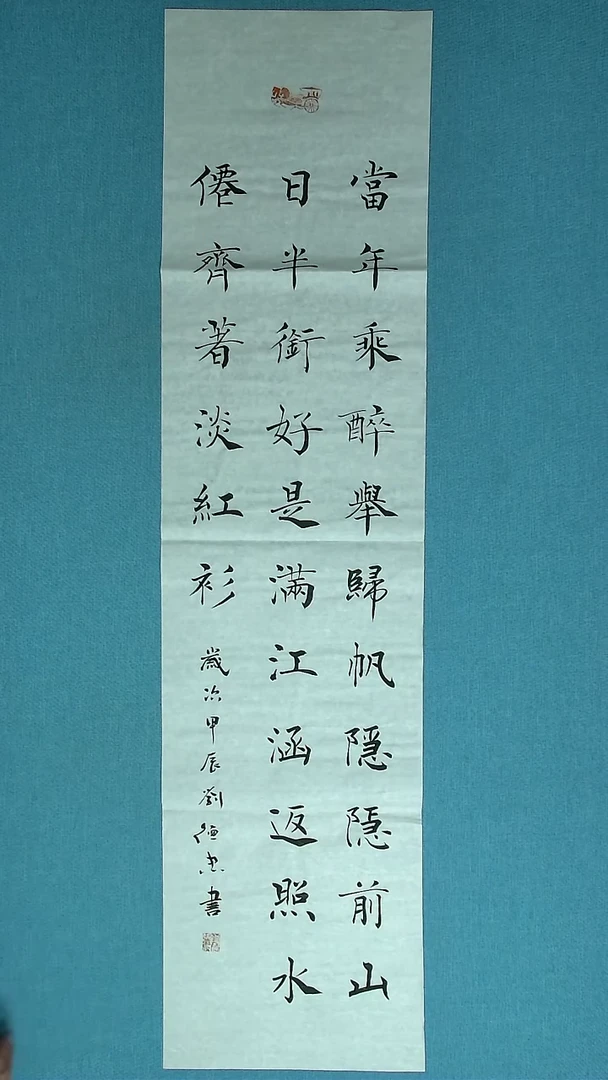 當年乘醉舉歸帆隱隱前山
日半銜好是滿江涵返照水
僊齊著淡紅衫
歲次甲辰劉德書